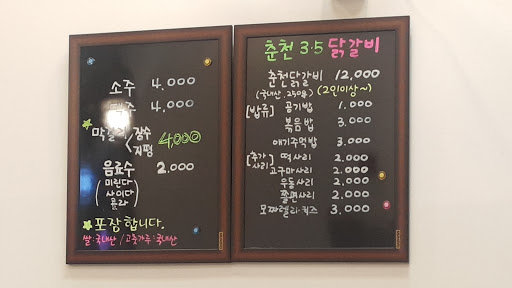 소주 4.000
맥주 4.000
막걸리 (장수 지평 4,000
음료수 2.000
(미린다
사이다
콜라)
포장합니다.
쌀:국내산 / 고춧가루:국내산
춘천 3.5 닭갈비
춘천닭갈비 12,000
(국내산, 250g) (2인이상~)
[밥류] 공기밥 1.000
볶음밥 3.000
애기주먹밥 3.000
[추가사리] 떡사리 2.000
고구마사리 2.000
우동사리 2.000
쫄면사리 2.000
모짜렐라.치즈 3,000